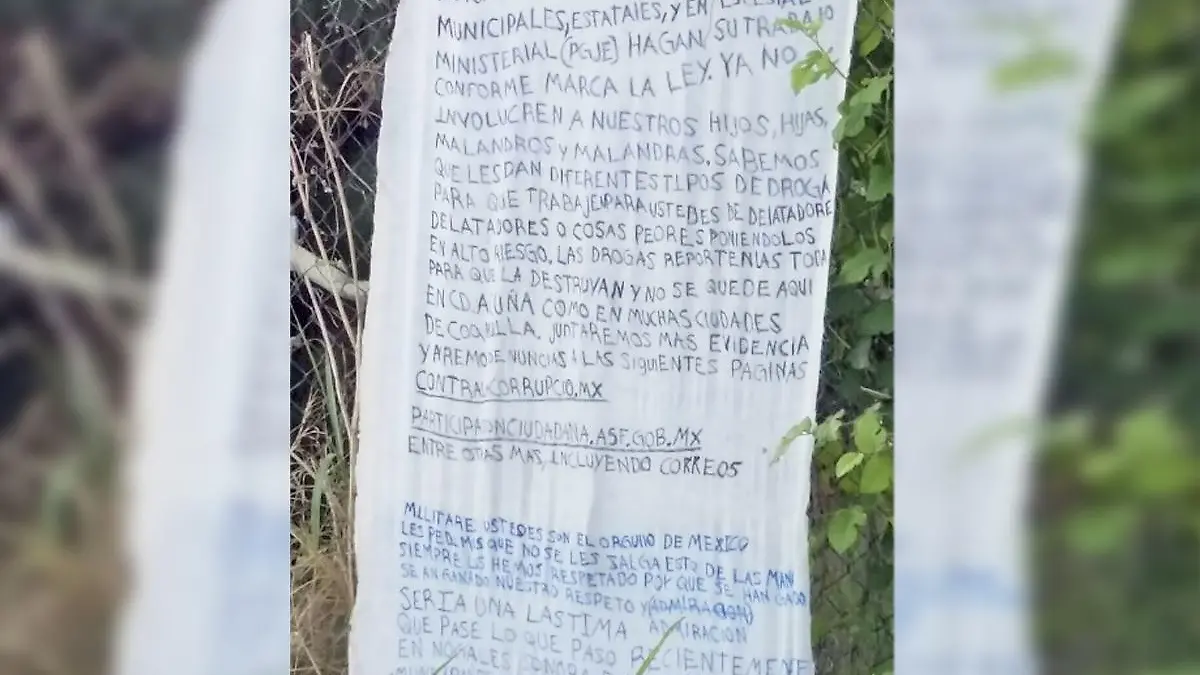 MUNICIPALES, ESTATALES, Y EN ESPESIAL
MINISTERIAL (PGJE) HAGAN SU TRABAJO
CONFORME MARCA LA LEY. YA NO
INVOLUCREN A NUESTROS HIJOS, HIJAS,
MALANDROS Y MALANDRAS, SABEMOS
QUE LES DAN DIFERENTES TIPOS DE DROGA
PARA QUE TRABAJEN PARA USTEDES DE DELATADORE
DELATADORES O COSAS PEORES PONIENDOLOS
EN ALTO RIESGO, LAS DROGAS REPORTENLAS TODA
PARA QUE LA DESTRUYAN Y NO SE QUEDE AQUI
EN CD. ACUÑA COMO EN MUCHAS CIUDADES
DE COAUILLA, JUNTAREMOS MAS EVIDENCIA
Y AREMO DENUNCIAS A LAS SIGUIENTES PAGINAS
CONTRALACORRUPCIO.MX
PARTICIPACIONCIUDADANA.ASF.GOB.MX
ENTRE OTRAS MAS, INCLUYENDO CORREOS
MILITARE USTEDES SON EL ORGULLO DE MEXICO
LES PEDIMIS QUE NO SE LES SALGA ESTO DE LAS MAN
SIEMPRE LS HEMOS RESPETADO POR QUE SE HAN GADO
SE AN GANADO NUESTRO RESPETO Y (ADMIRACION)
SERIA UNA LASTIMA ADMIRACION
QUE PASE LO QUE PASO RECIENTEMENE
EN NOGALES SONORA